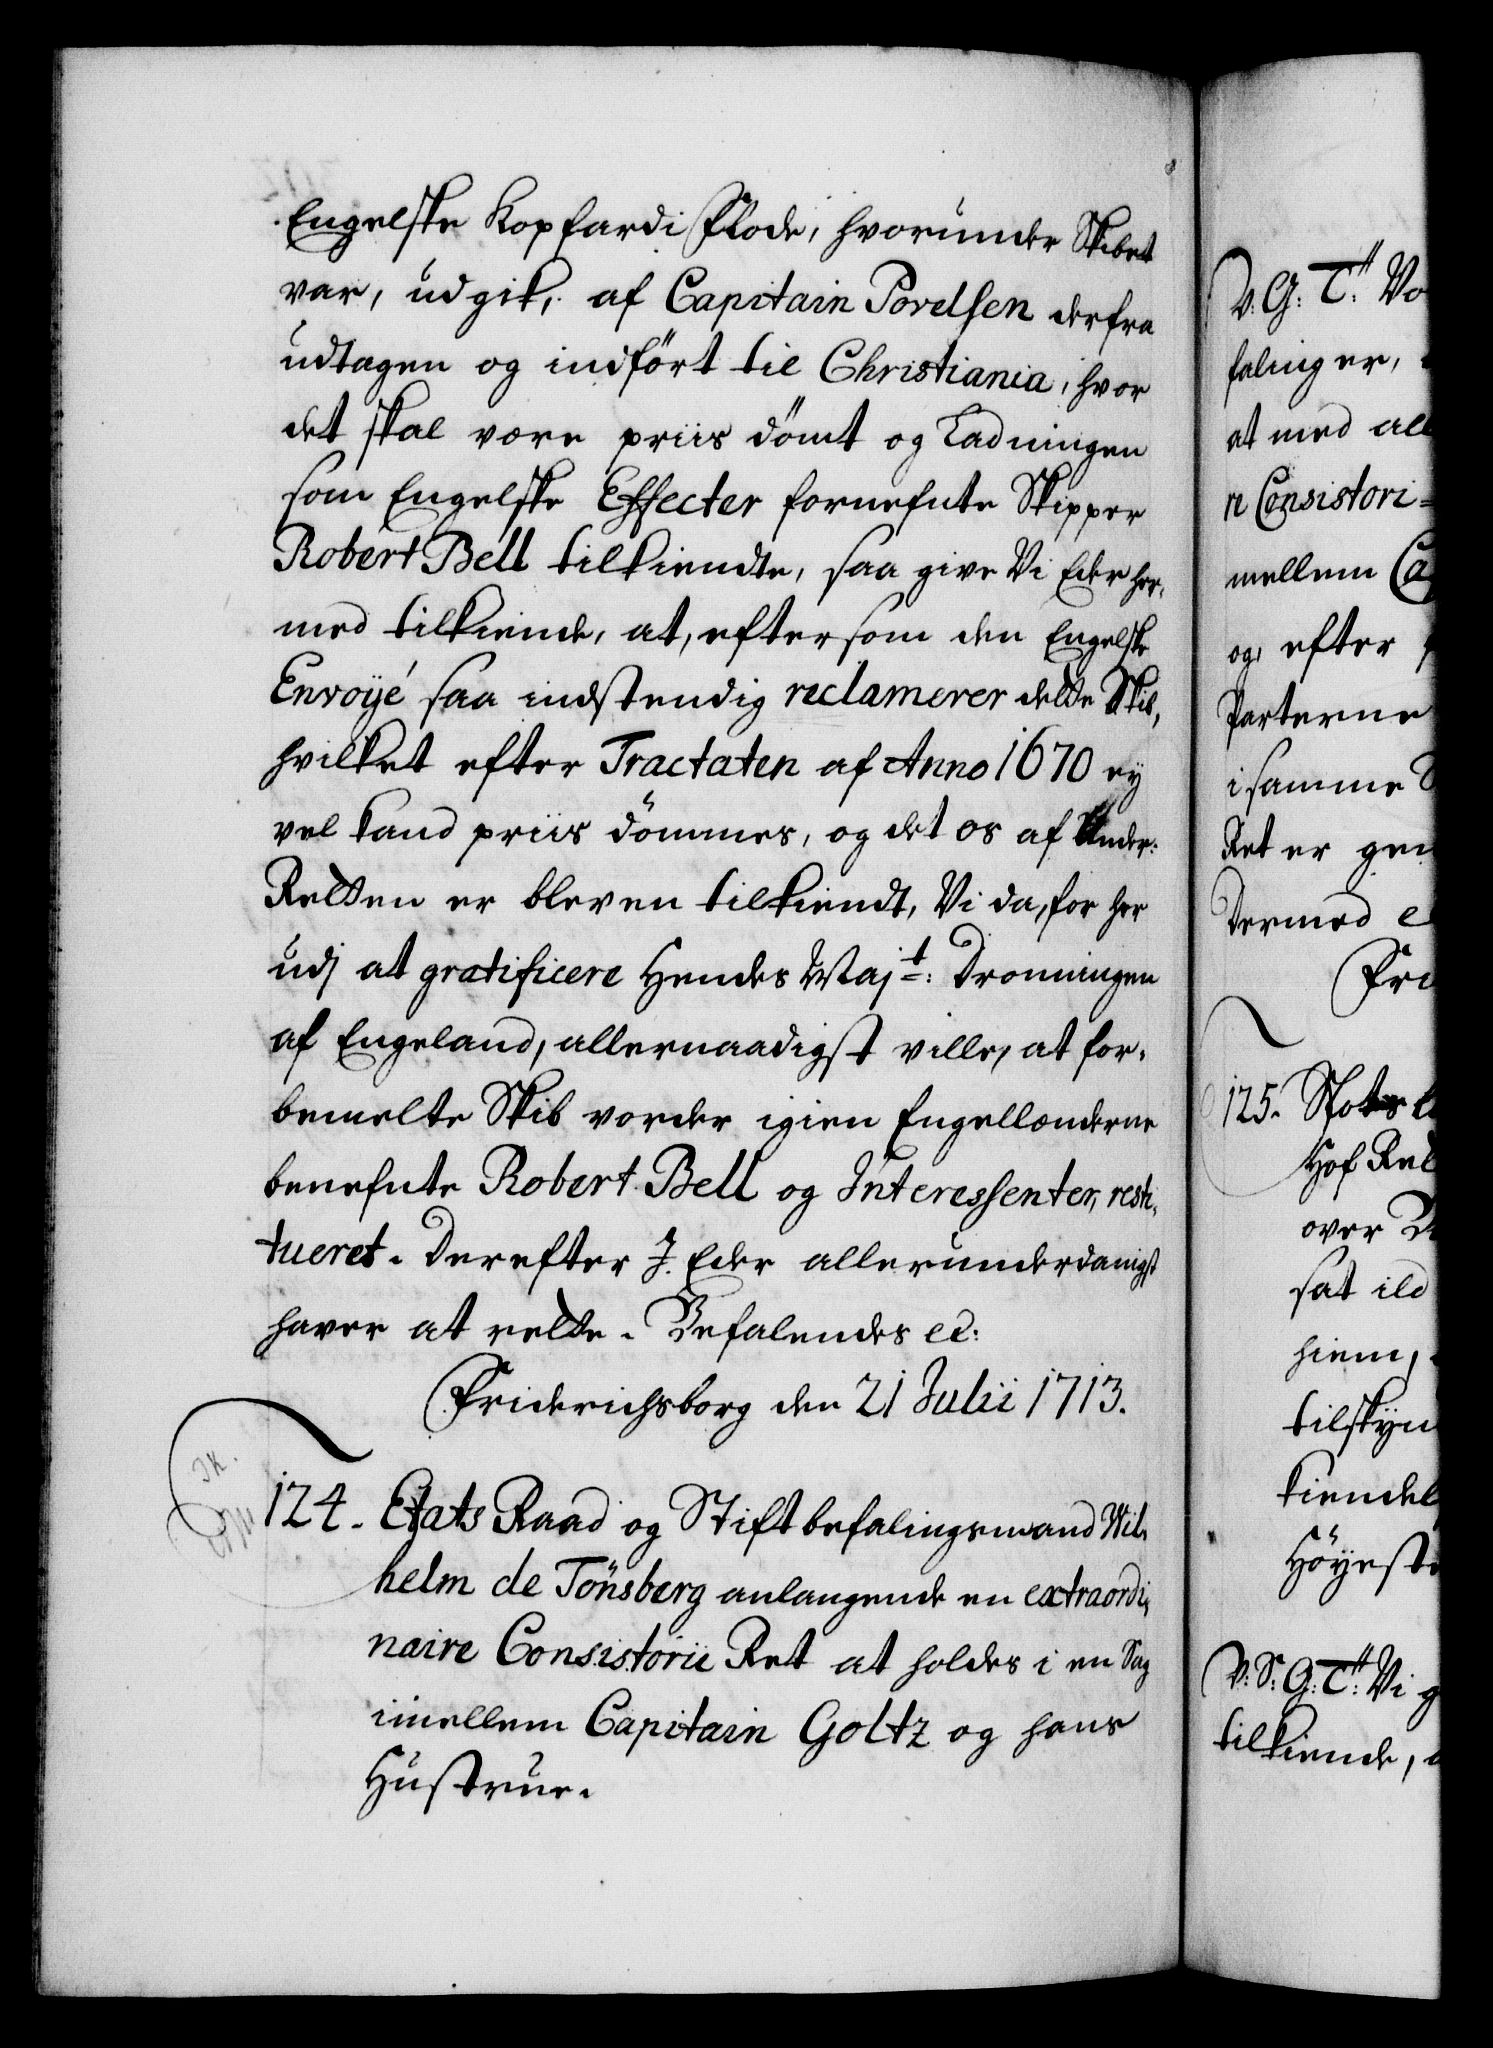 Engelske Kopfardi Flode, hvorunder Skibet
var, udgik, af Capitain Povelsen derfra
udtagen og indført til Christiania, hvor
det skal være priis dömt og Ladningen
som Engelske Effecter fornefnte Skipper
Robert Bell tilkiendte, saa give Vi Eder her,
med tilkiende, at, eftersom den Engelske
Envoÿé saa indstendig reclamerer dette Skib,
hvilket efter Tractaten af Anno 1670 ey
vel kand priis dömmes, og det os af Under:
Retten er bleven tilkiendt, Vi da, for her
udj at gratificere Hendes Majt: Dronningen
af Engeland, allernaadigst ville, at for,
bemelte Skib vorder igien Engellænderne
benefnte Robert Bell og Interessenter, resti,
tueret. Derefter I Eder allerunderdanigst
haver at rette. Befalendes etc:
Friderichsborg den 21 Julii 1713.
124. Etats Raad og Stiftbefalingsmand Wil,
helm de Tönsberg anlangende en extraordi,
naire Consistorii Ret at holdes i en Sag
imellem Capitain Goltz og hans
Hustrue.
V: G: T: Vo
falinger,
at med all
re Consistori=
mellem Ca
og, efter
Parterne
i samme
Ret er gen
Dermed e
Fri
125. Slots
Hof Ret
over
sat ild
hiem,
tilskÿn
kiendel
Höÿeste
V: S: G: T: Vi g
tilkiende,